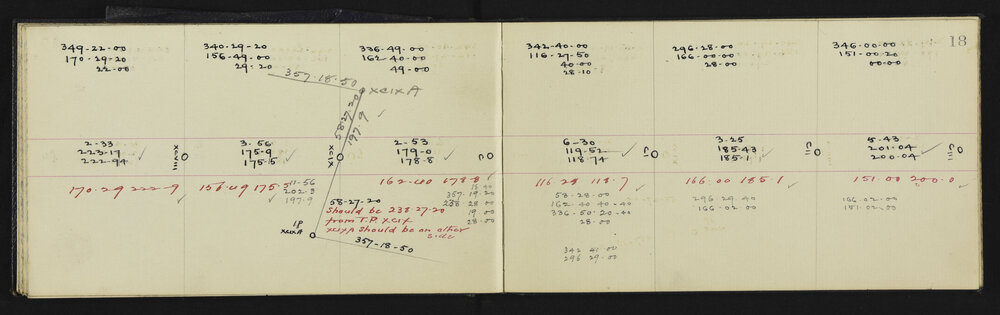 18
349-22-00
170-29-20
22-00
340-29-20
156-49-00
29-20
336-49-00
162-40-00
49-00
342-40-00
116-27-50
40-00
28-10
296-28-00
166-00-00
28-00
346-00-00
151-00-20
00-00
357-18-50
XCIX A
58-27-20
197-9
2-33
223-17
222-94
XCVIII
3-56
175-9
175-5
XCIX
2-53
179-0
178-8
C
6-30
119-52
118-74
CI
3-25
185-43
185-1
CII
5-43
201-04
200-04
CIII
170-29 222-9
156-49 175-5
162-40 178-8
116-28 118-7
166-00 185-1
151-00 200-0
11-56
202-3
197-9
58-27-20
should be 238 27-20
from T.P. XCIX
XCIXA should be on other
side
IP
XCIXA
357-18-50
357-19-20
238 28 00
19 00
28-00
58-28-00
162-40 40-40
336-50-20-40
28-00
342 41 00
296 29-00
296 29-40
166-02-00
166-02-00
151-02-00